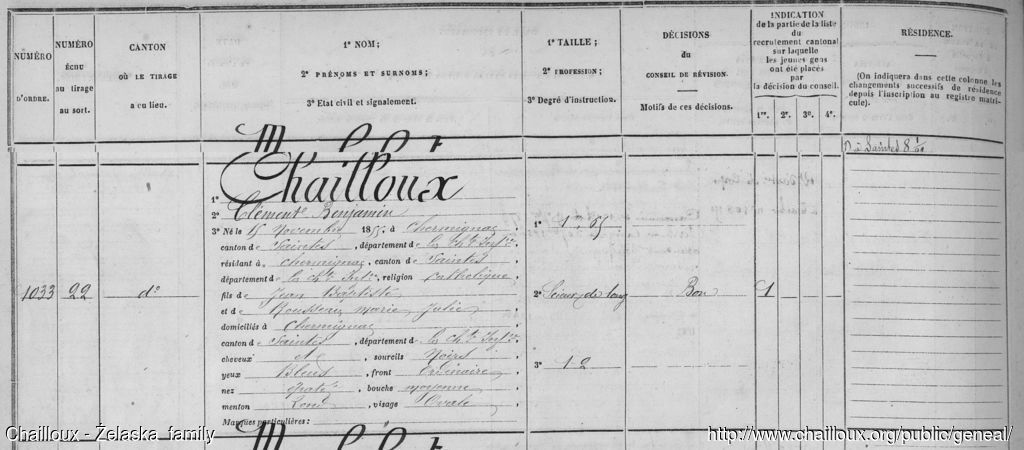 NUMÉRO
D'ORDRE.
NUMÉRO
ÉCHU
au tirage
au sort.
CANTON
OÙ LE TIRAGE
a eu lieu.
1° NOM;
2° PRÉNOMS ET SURNOMS;
3° Etat civil et signalement.
1° TAILLE;
2° PROFESSION;
3° Degré d'instruction.
DÉCISIONS
du
CONSEIL DE RÉVISION.
Motifs de ces décisions.
INDICATION
de la partie de la liste
du
recrutement cantonal
sur laquelle
les jeunes gens
ont été placés
par
la décision du conseil.
1re. 2e. 3e. 4e.
RÉSIDENCE.
(On indiquera dans cette colonne les
changements successifs de résidence
depuis l'inscription au registre matri-
cule).
Saintes
1° Chailloux
2° Clément Benjamin
3° Né le 15 Novembre 185. à Chermignac
canton de Saintes, département de la Ch.te Inf.re
résidant à Chermignac, canton de Saintes
département de la Ch.te Inf.re, religion Catholique
fils de Jean Baptiste
et de Rousseau Marie Julie
domiciliés à Chermignac
canton de Saintes, département de la Ch.te Inf.re
cheveux et, sourcils Noirs
yeux Bleus, front Ordinaire
nez épaté, bouche moyenne
menton Rond, visage Ovale
Marques particulières:
1033 22 do
1° 1m 65
2° Scieur de long
3° 1 2
Bon 1
Chailloux - Żelaska family
http://www.chailloux.org/public/geneal/